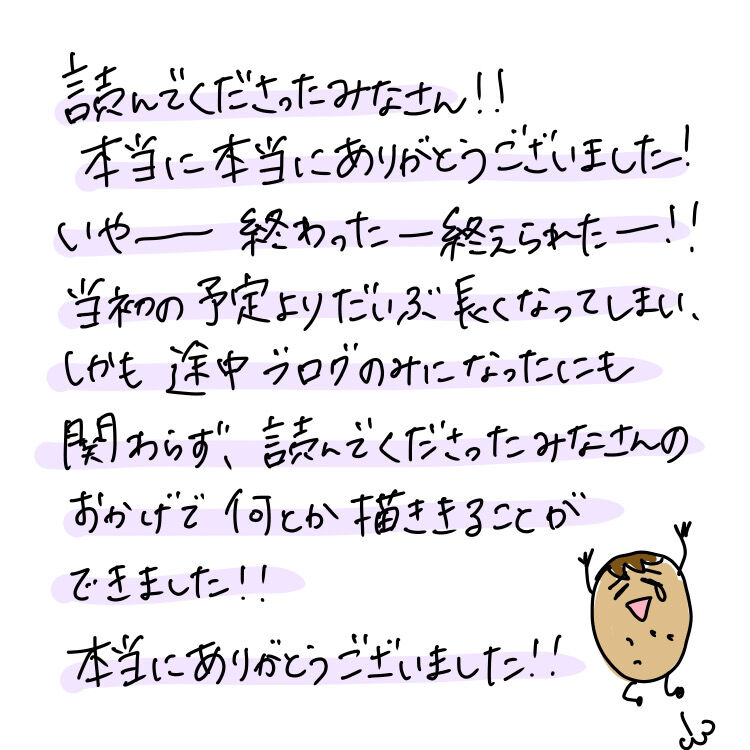 読んでくださったみなさん!!
本当に本当にありがとうございました!
いやー 終わったー終えられたー!!
当初の予定よりだいぶ長くなってしまい、
しかも途中ブログのみになったにも
関わらず、読んでくださったみなさんの
おかげで何とか描ききることが
できました!!
本当にありがとうございました!!